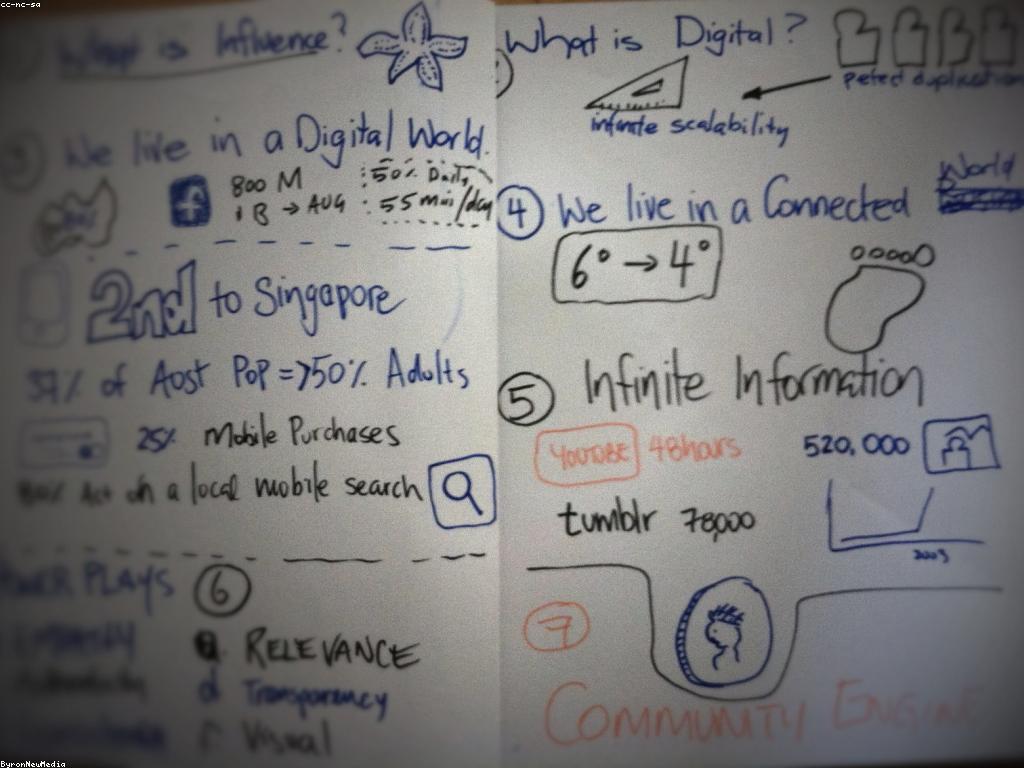 cc-nc-sa
What is Influence?
3 We live in a Digital World.
f 800 M 50% Daily
1 B → AUG 55 min/day
2nd to Singapore
37% of Aost Pop => 50% Adults
25% Mobile Purchases
80% Act on a local mobile search
PLAYS 6
RELEVANCE
Transparency
Visual
What is Digital?
pefect duplication
infinite scalability
4 We live in a Connected World
6° → 4°
5 Infinite Information
YOUTUBE 48hours 520,000
tumblr 78,000
2003
7
COMMUNITY ENGINE
ByronNewMedia